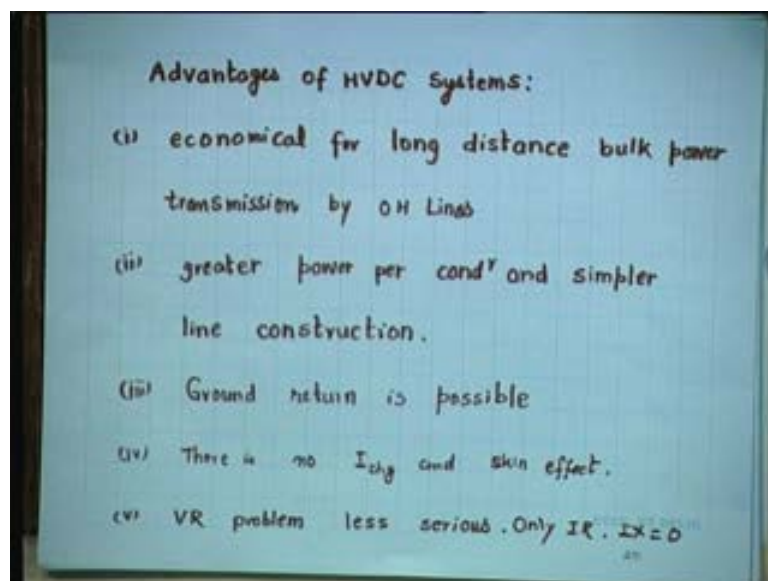 Advantages of HVDC Systems:
(i) economical for long distance bulk power
transmission by OH Lines
(ii) greater power per condʳ and simpler
line construction.
(iii) Ground return is possible
(iv) There is no Ichg and skin effect.
(v) VR problem less serious. Only IR. IX=0